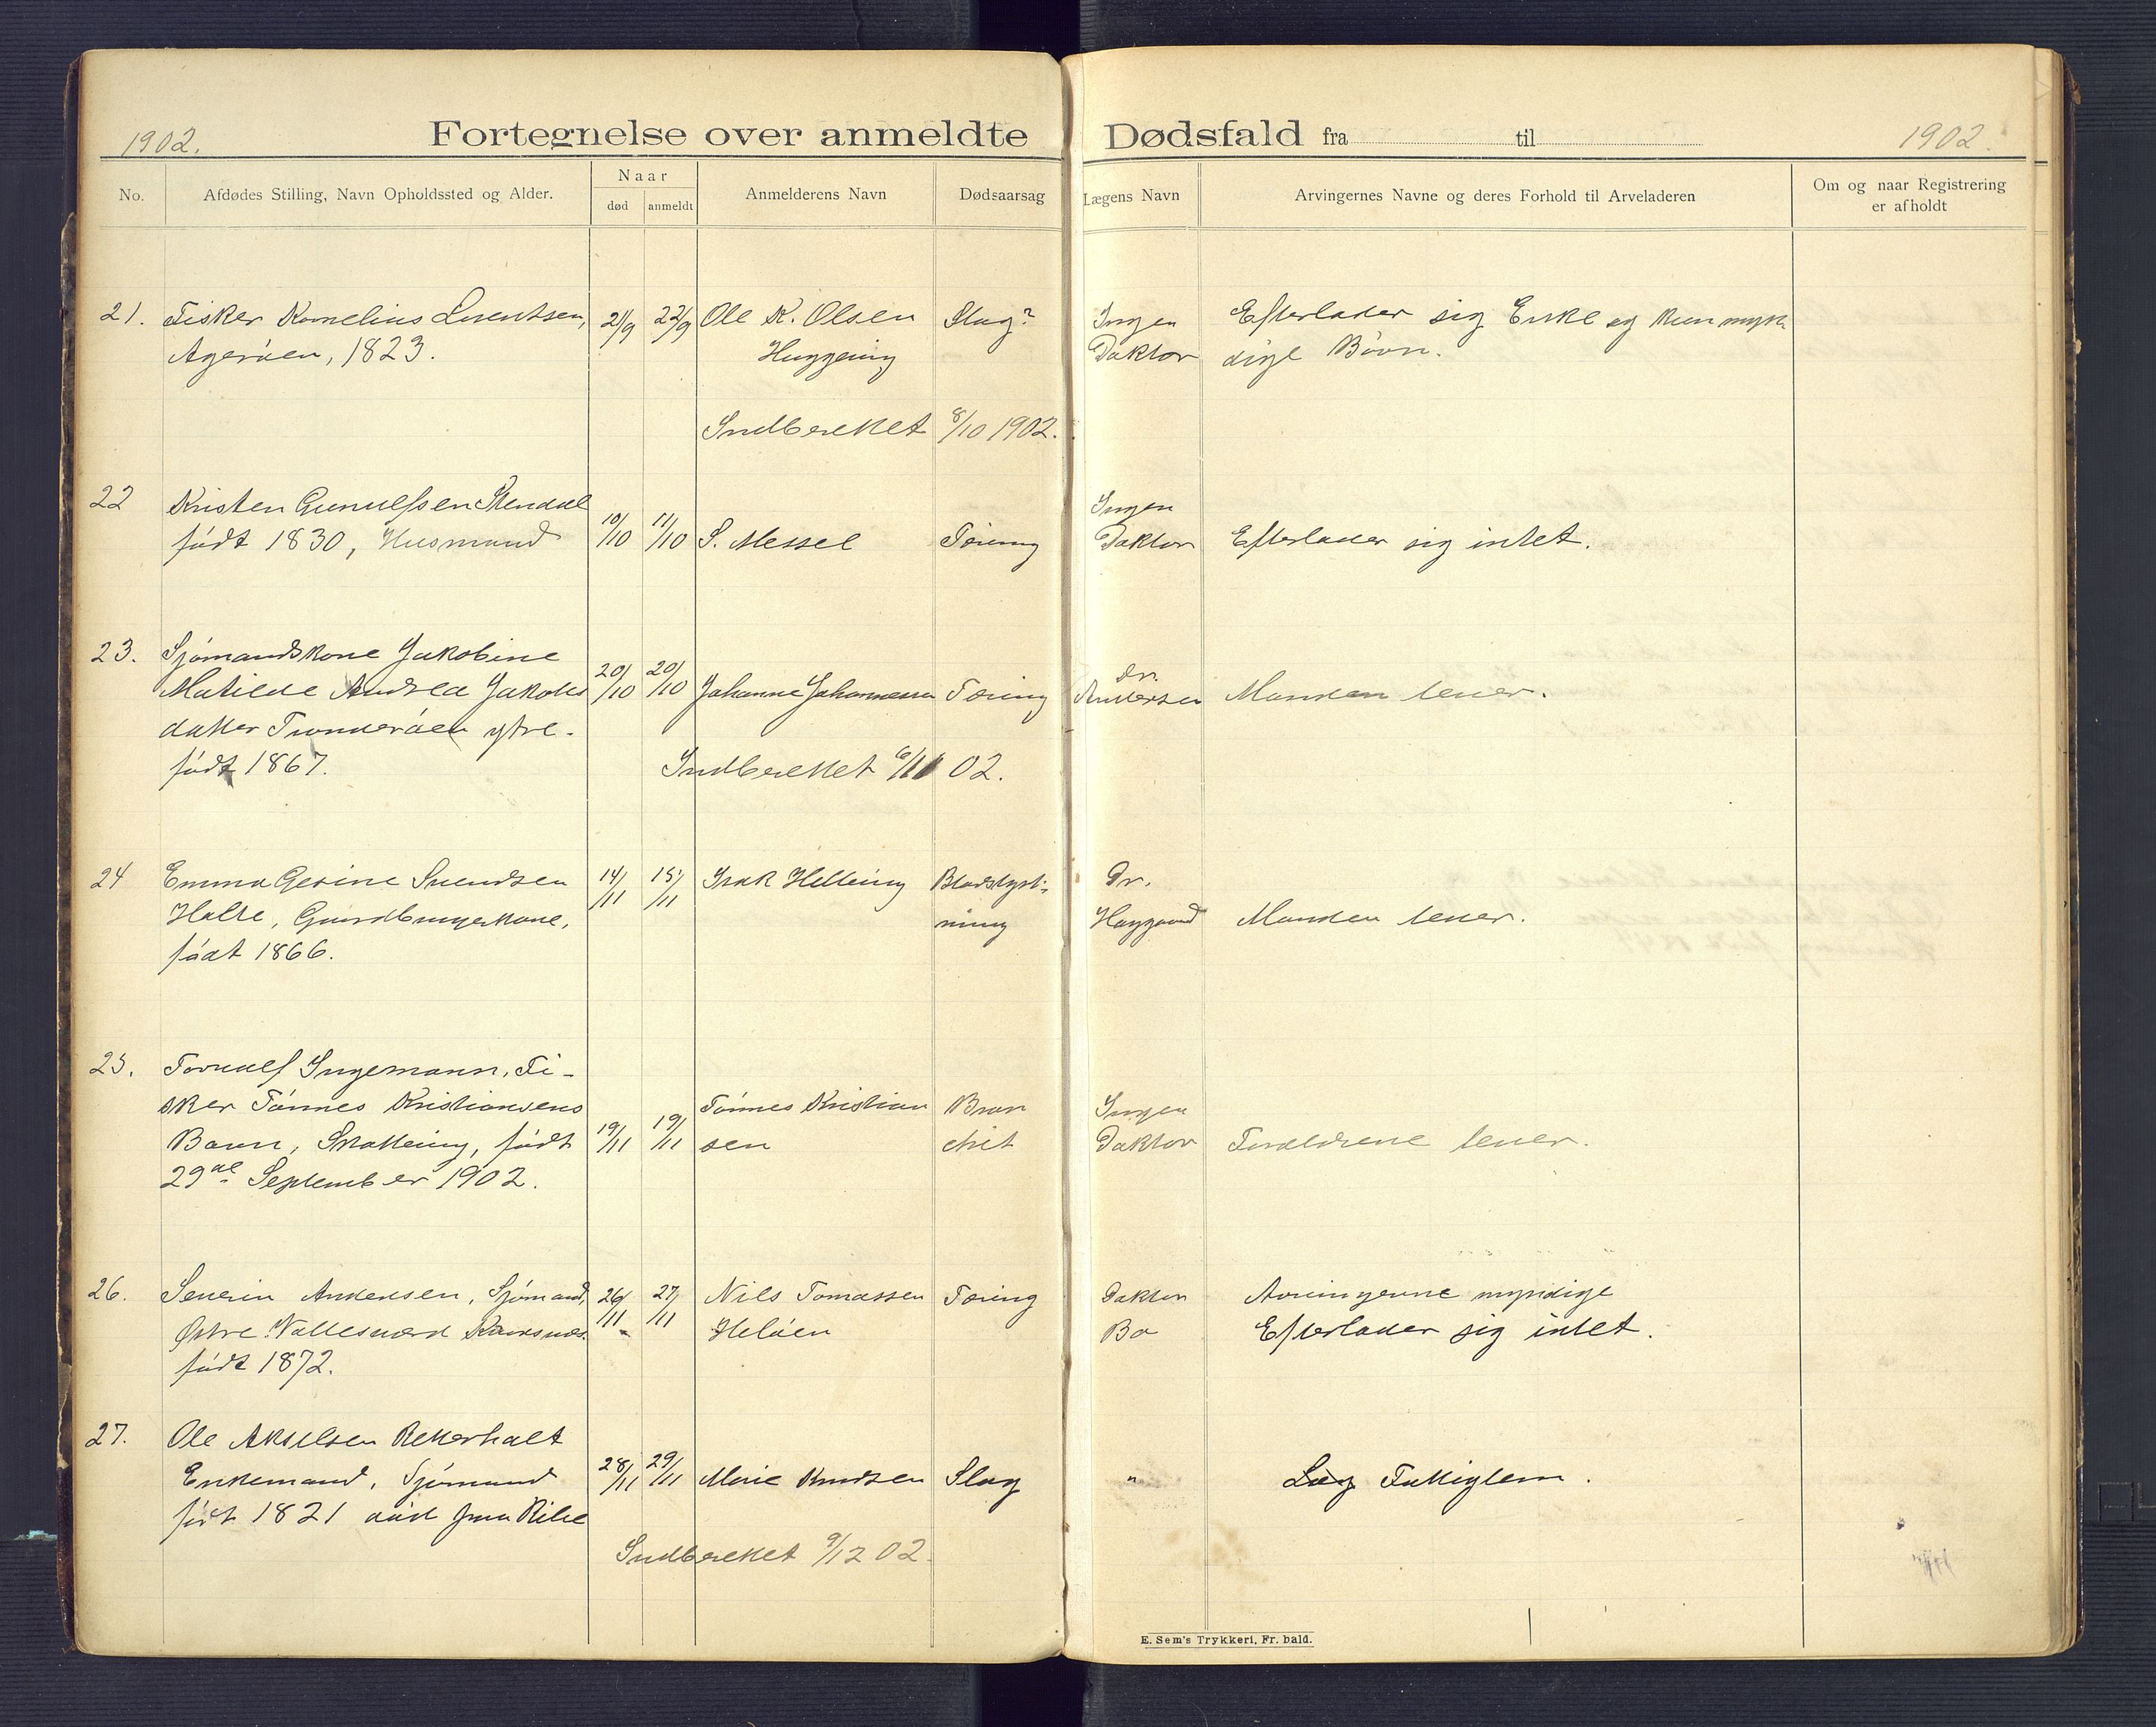 1902.
Fortegnelse over anmeldte Dødsfald fra til
1902.
No.
Afdødes Stilling, Navn Opholdssted og Alder.
Naar
død
anmeldt
Anmelderens Navn
Dødsaarsag
Lægens Navn
Arvingernes Navne og deres Forhold til Arveladeren
Om og naar Registrering
er afholdt
21. Fisker Kornelius Lorentsen, 21/9 22/9 Ole K. Olsen Slag? Ingen Efterlader sig Enke og kun myn-
Agerøen, 1823. Huggering Doktor dige Børn.
Indberettet 8/10 1902.
22 Kristen Gunulfsen Stendal Ingen
født 1830, Husmand 10/10 11/10 S. Messel Tæring Doktor Efterlader sig intet.
23. Sjømandskone Jakobine
Matilde Andrea Jakobs 20/10 20/10 Johanne Johannessen Tæring Dr. Andersen Manden lever.
datter Tronderøen ytre.
født 1867. Indberettet 6/11 02.
24 Emma Gesine Svendsen 14/11 15/11 Isak Hellering Blodstyrt- Dr.
Holte, Gaardbrugerkone, ning Haggaard Manden lever.
født 1866.
25. Torvalf Ingemann, Fi-
sker Tønnes Kristiansens Tønnes Kristian Bron Ingen
Barn, Skottering, født 19/11 19/11 sen chit Doktor Forældrene lever.
29de September 1902.
26. Severin Andersen, Sjømand, 26/11 27/11 Nils Tomassen Tæring Doktor Arvingerne myndige
Østre Vallesværd Heløen Bo Efterlader sig intet.
født 1872.
27. Ole Akselsen Rekerhalt
Enkemand, Sjømand 28/11 29/11 Marie Knudsen Slag " Læg Fattiglem.
født 1821
Indberettet 9/12 02.
E. Sem's Trykkeri, Fr. hald.